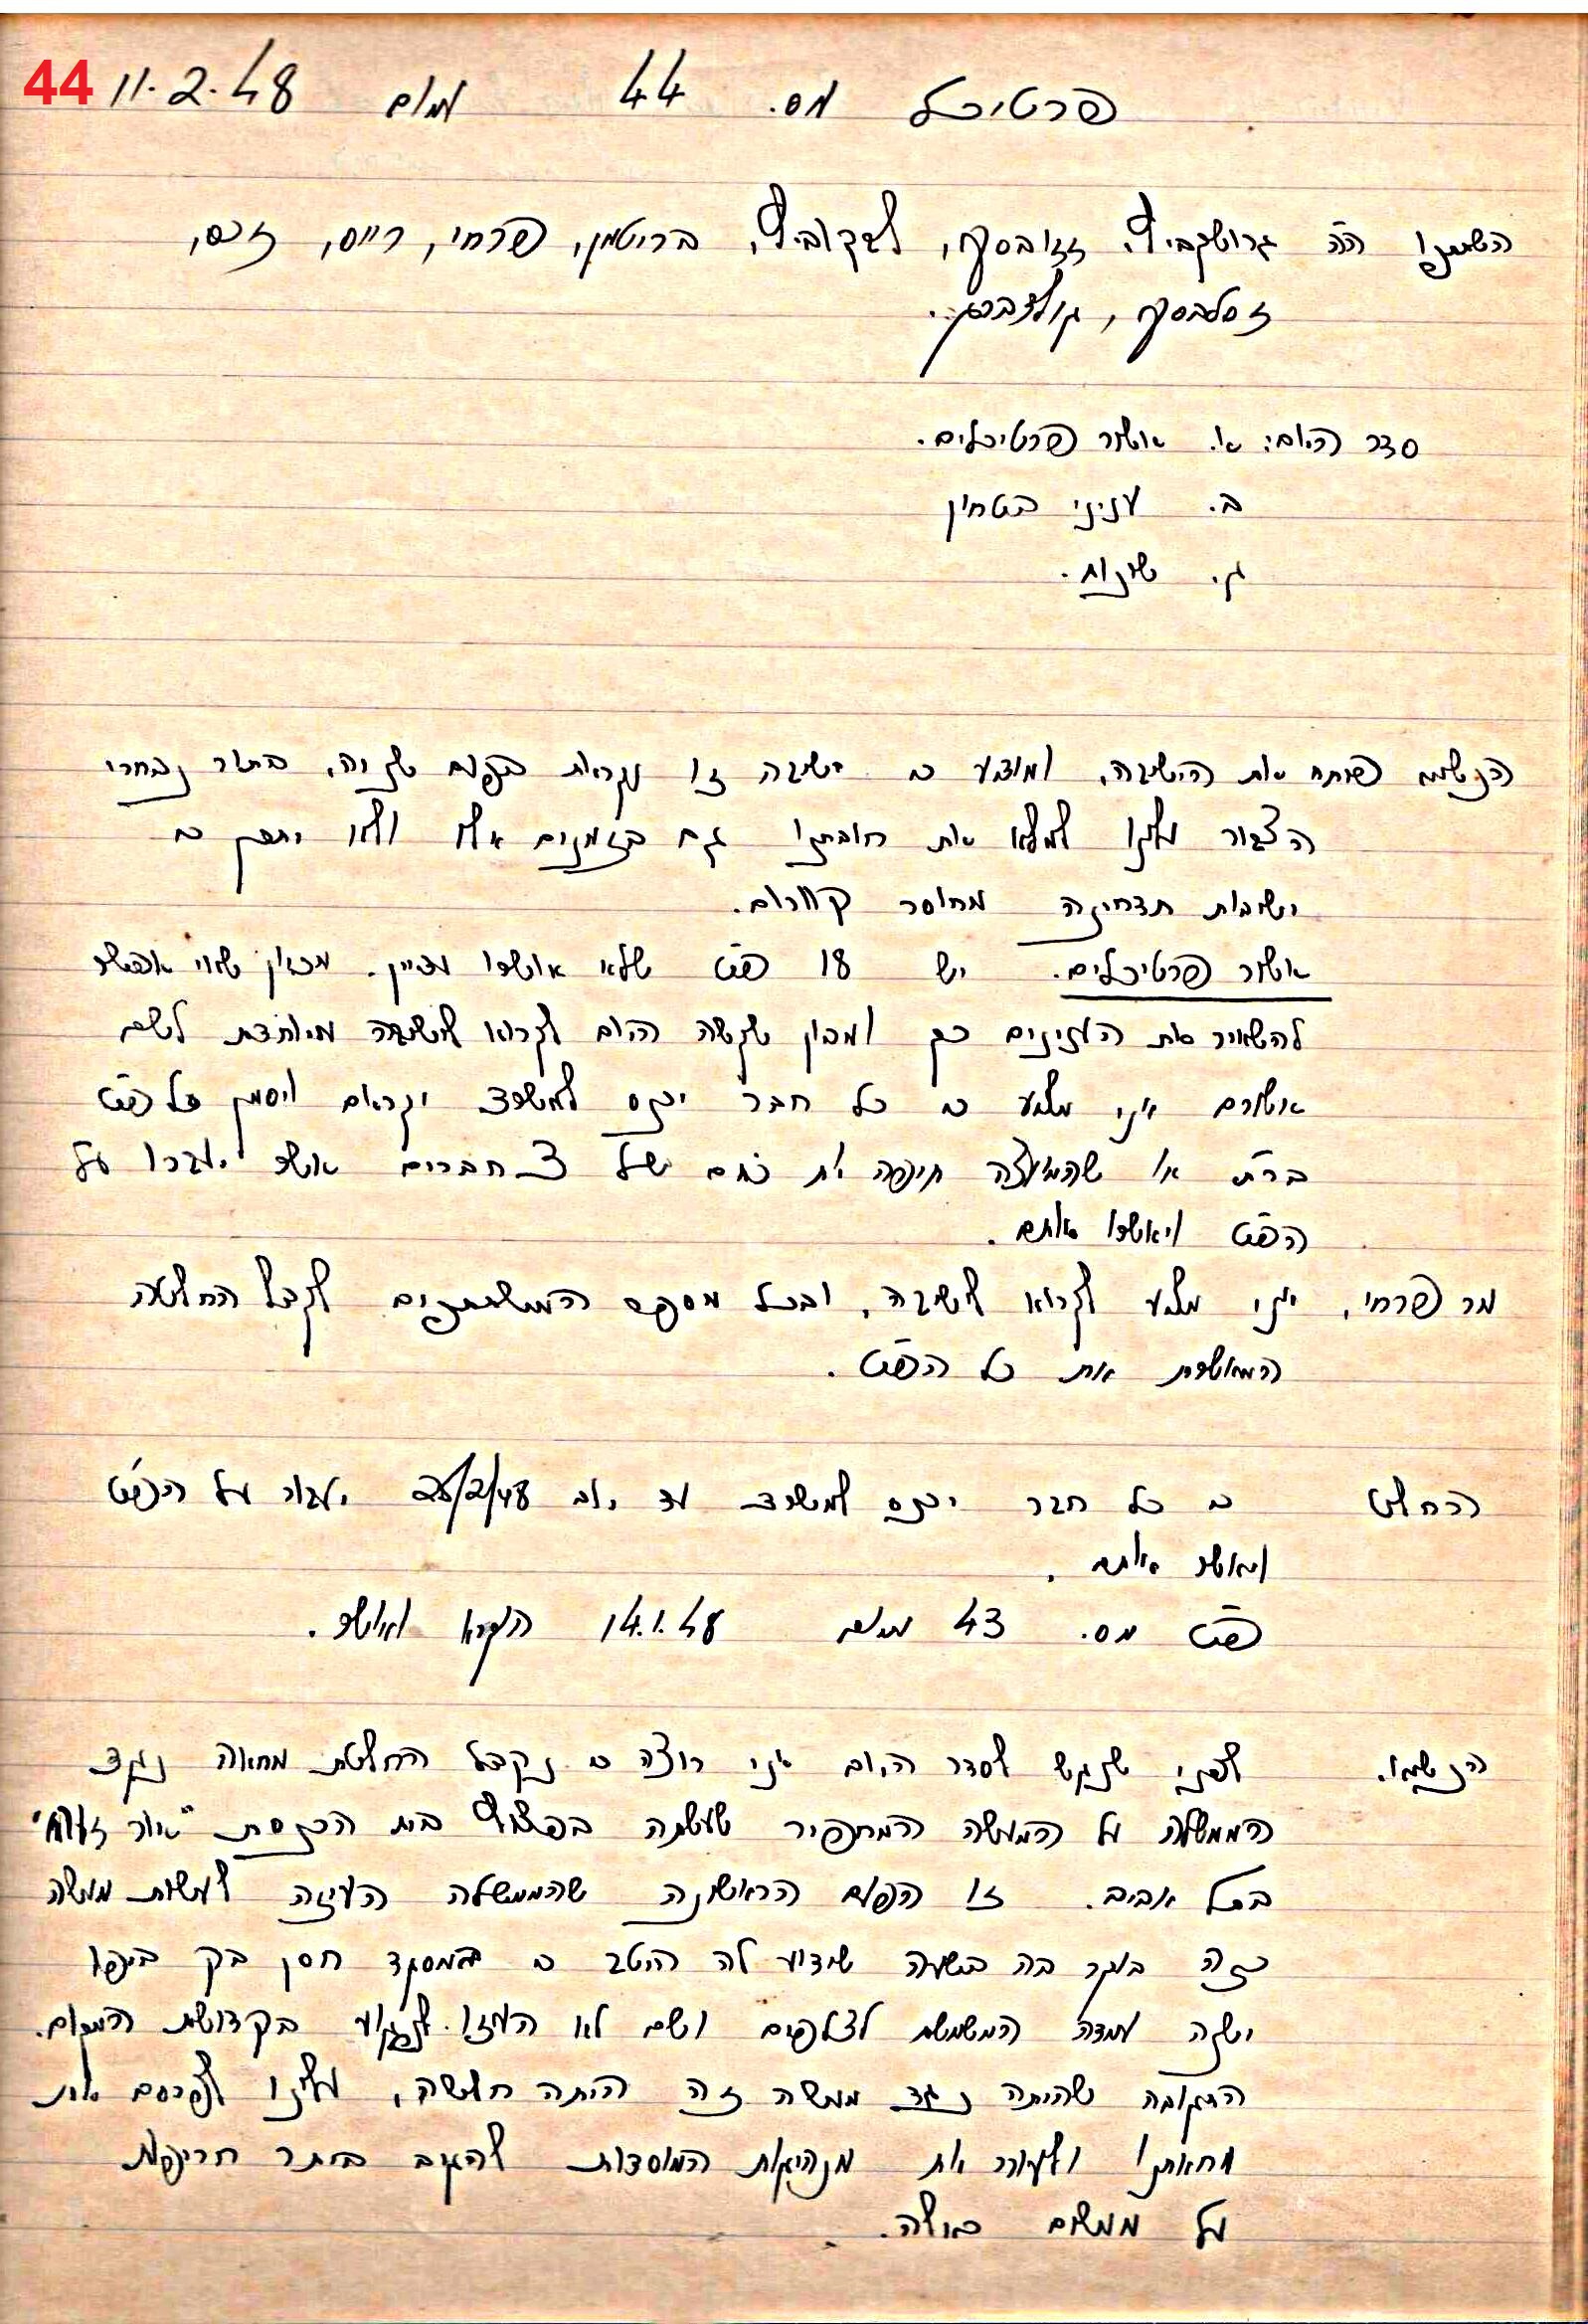 44
פרטיכל מס. 44 מיום 11.2.48
השתתפו ה"ה גרושקביץ, זגובסקי, לעקוביץ, ברויטמן, פרחי, רייס, זכס,
זסלבסקי, גולדברג.
סדר היום: א. אשור פרטיכלים.
ב. עניני בטחון
ג. שונות.
הנשיא פותח את הישיבה, ומודיע כי ישיבה זו נקראת בפעם שניה, בתור נבחרי
הצבור עלינו למלא את חובתנו גם בזמנים אלו ולא יתכן כי
ישיבות תדחינה מחוסר קוורום.
אשור פרטיכלים. יש 18 פרט' שלא אושרו עדיין. מכיון שאי אפשר
להשאיר את הענינים כך ומכיון שקשה היום לקרוא לישיבה מיוחדת לשם
אשורם אני מציע כי כל חבר יכנס למשרד יקראם ויסמן כל פרט'
בר"ת או שהמועצה תיפה את כחם של 3 חברים אשר יעברו על
הפרט' ויאשרו אותם.
מר פרחי, אני מציע לקרוא לישיבה, ובכל מספר המשתתפים לקבל החלטה
המאשרת את כל הפרט'.
הוחלט כי כל חבר יכנס למשרד עד יום 25/2/48 יעבור על הפרט'
ויאשר אותם.
פרט' מס. 43 מיום 14.1.48 הוקרא ואושר.
הנשיא. לפני שנגש לסדר היום אני רוצה כי נקבל החלטת מחאה נגד
הממשלה על המעשה המחפיר שעשתה בפצוץ בית הכנסת "אור זרוע"
בתל אביב. זו הפעם הראשונה שהממשלה העיזה לעשות מעשה
כזה בוקר בה בשעה שידוע לה היטב כי במסגד חסן בק ביפו
ישנה עמדה המשמשת לצלפים ושם לא העיזו לפגוע בקדושת המקום.
התגובה שהיתה נגד מעשה זה היתה חלושה, עלינו לפרסם את
מחאתנו ולעורר את מנהיגות המוסדות להגיב ביתר חריפות
על מעשים כאלה.